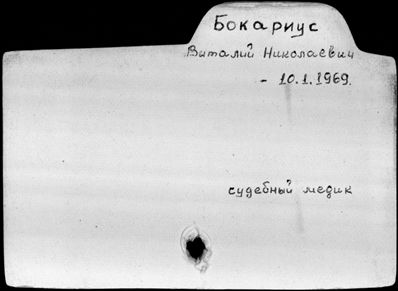 Бокариус
Виталий Николаевич
- 10.1.1969.
судебный медик